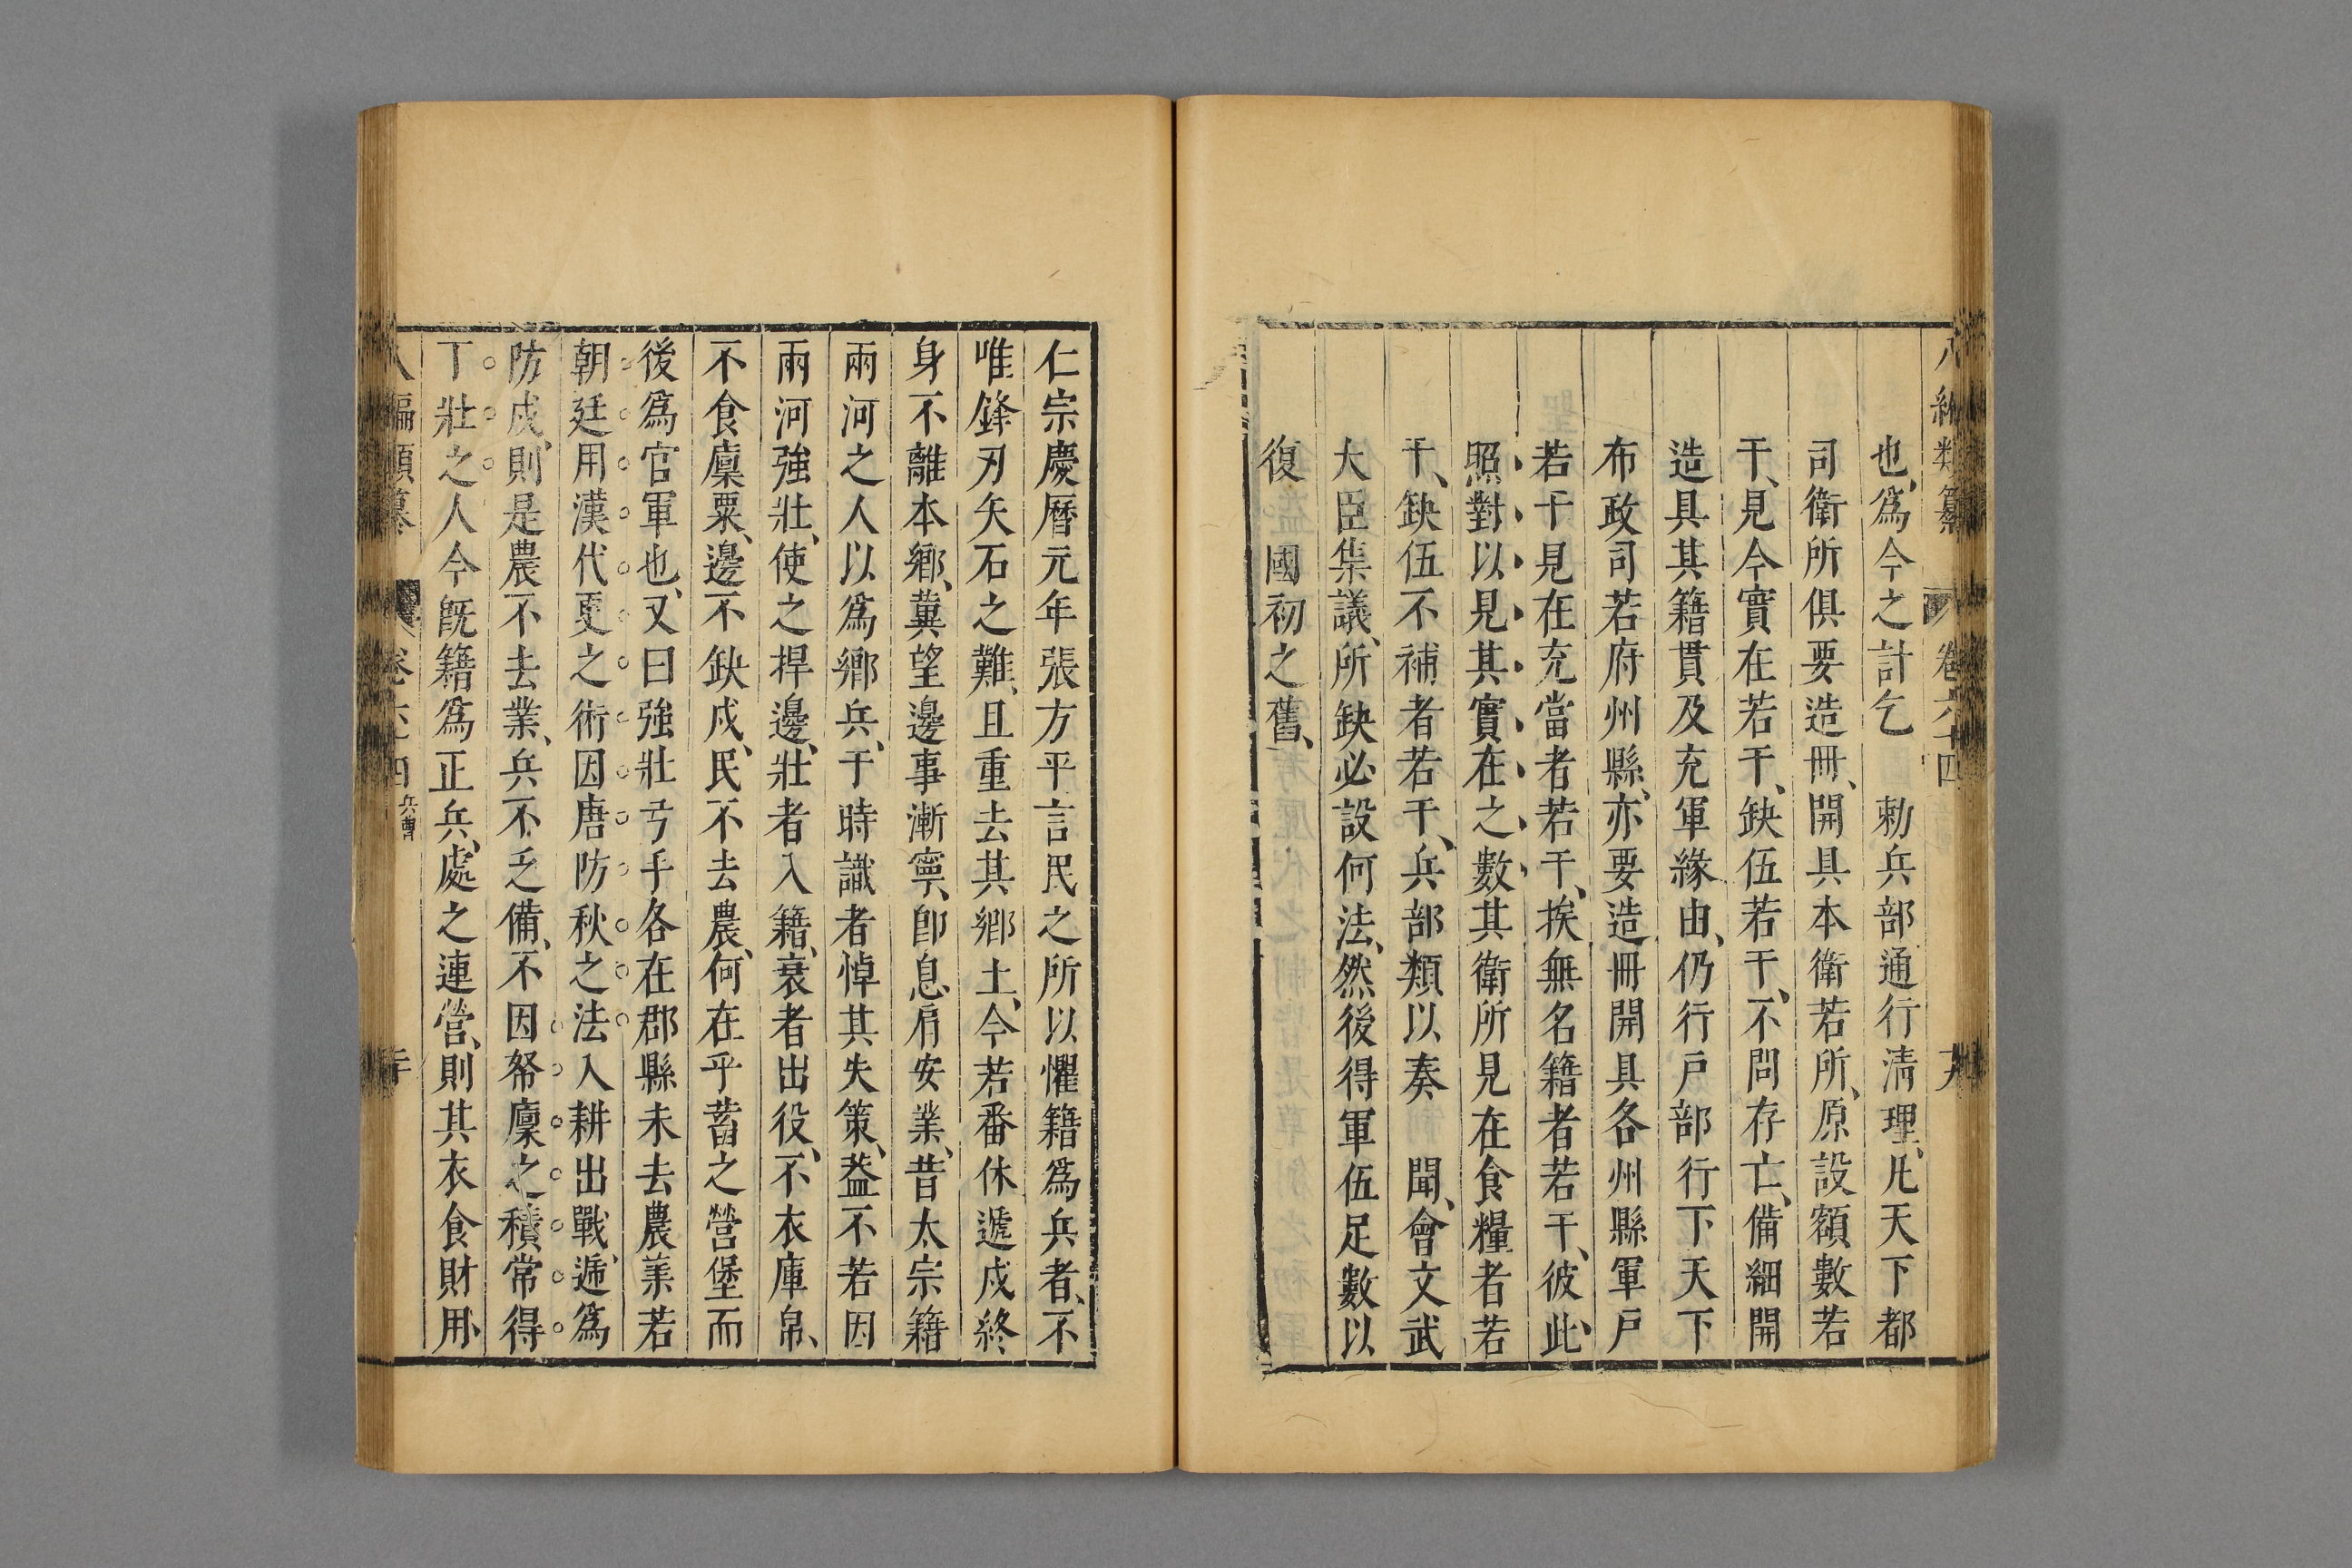 八編類纂 卷六十四 十九
也、爲今之計乞 勅兵部通行淸理、凡天下都
司衛所俱要造冊、開具本衛若所、原設額數若
干、見今實在若干、缺伍若干、不問存亡、備細開
造具其籍貫及充軍緣由、仍行戸部行下天下
布政司若府州縣、亦要造冊開具各州縣軍戸
若干見在充當者若干、挨無名籍者若干、彼此
照對以見其實在之數其衛所見在食糧者若
干、缺伍不補者若干、兵部類以奏 聞、會文武
大臣集議、所缺必設何法、然後得軍伍足數以
復 國初之舊、
仁宗慶曆元年張方平言民之所以懼籍爲兵者、不
唯鋒刃矢石之難、且重去其鄉土、今若番休遞戍終
身不離本鄉、冀望邊事漸寧、卽息肩安業、昔太宗籍
兩河之人以爲鄉兵、于時識者悼其失策、葢不若因
兩河強壯、使之捍邊、壯者入籍、衰者出役、不衣庫帛、
不食廩粟、邊不缺戍、民不去農、何在乎蓄之營堡而
後爲官軍也、又曰強壯弓手各在郡縣未去農業若
朝廷用漢代更之術因唐防秋之法入耕出戰、遞爲
防戍、則是農不去業、兵不乏備、不因帑廩之積常得
丁壯之人今旣籍爲正兵、處之連營、則其衣食財用、
八編類纂 卷六十四 兵曹 二十